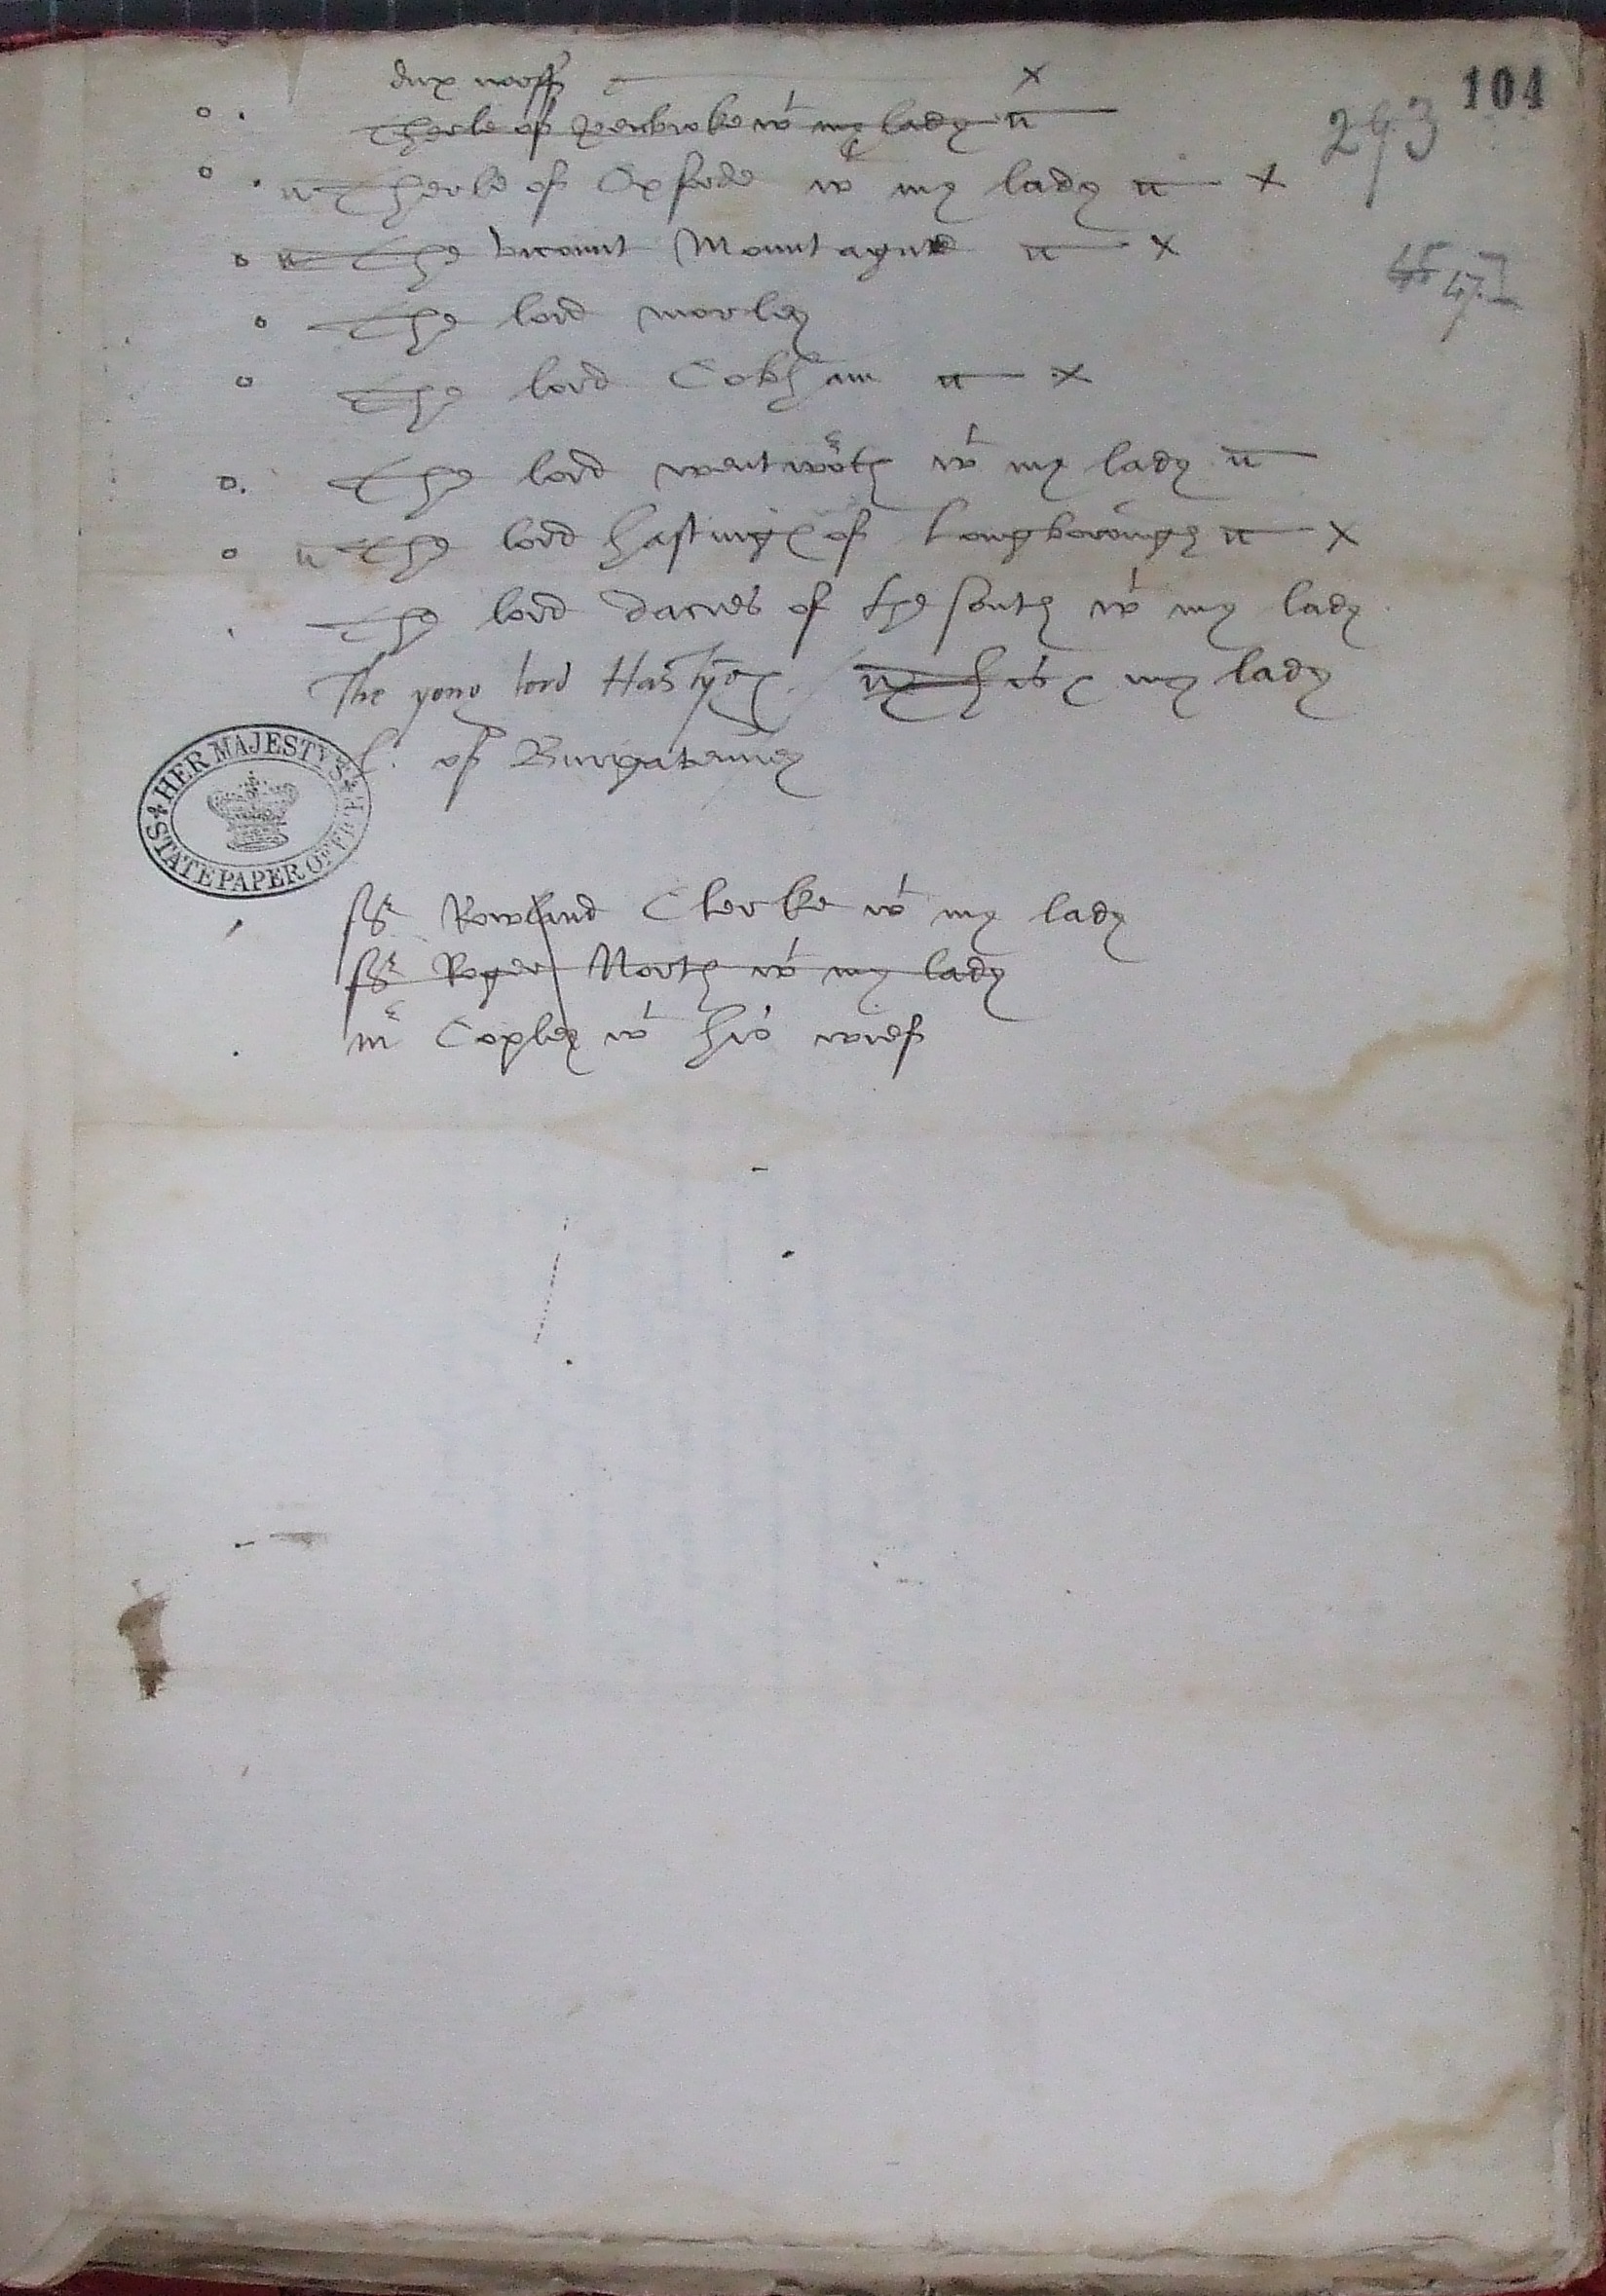 104
293
dux norff x
Therle of penbroke wt my lady n
Therle of Oxforde wt my lady n x
The vicount Mountague n x
45 47
The lord morley
The lord Cobham n x
The lord wentworth wt my lady n
n The lord hastinges of Longborough n x
The lord dacres of the south wt my lady
The yong lord Hastyngs my lady
of Burgavenney
HER MAJESTY'S STATE PAPER OFFICE
Sr Rowland Clerke wt my lady
Sr Roger North wt my lady
mr Copley wt his wief